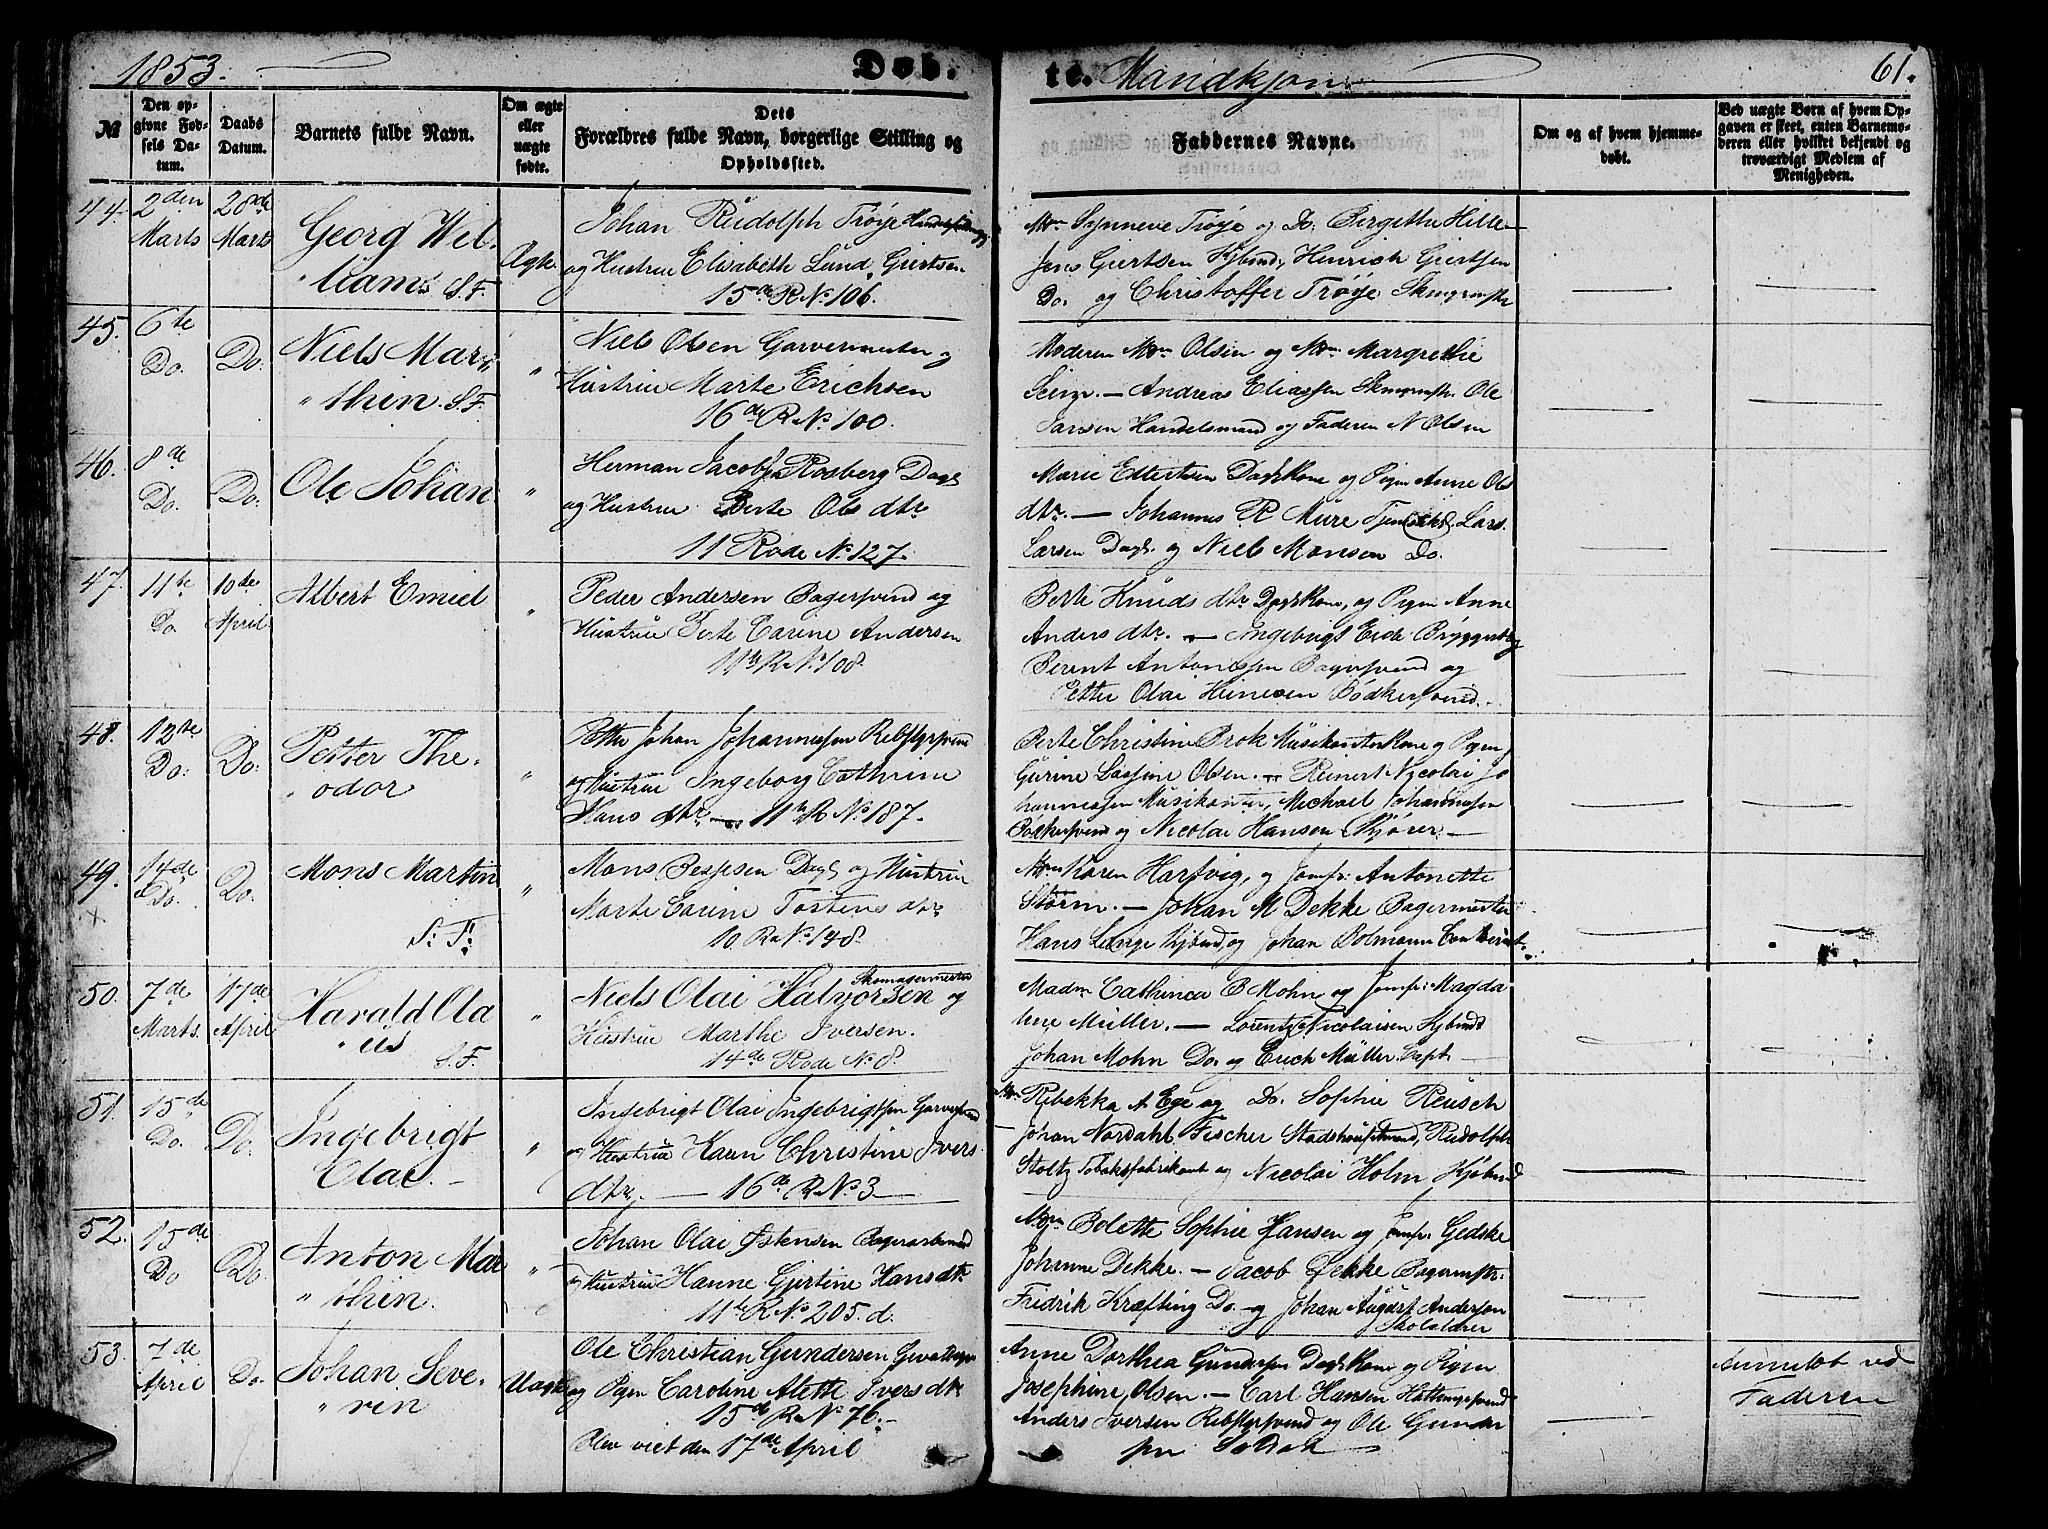 1853. Døb- te. Mandkjøn. 61.
№
Den op-
givne Fød-
sels Da-
tum.
Daabs
Datum.
Barnets fulde Navn.
Om ægte
eller
uægte
fødte.
Dets
Forældres fulde Navn, borgerlige Stilling og
Opholdssted.
Faddernes Navne.
Om og af hvem hjemme-
døbt.
Ved uægte Børn af hvem Op-
gaven er skeet, enten Barnemo-
deren eller hvilket bekjendt og
troværdigt Medlem af
Menigheden.
44. 2den Marts 20de Marts
Georg Wil-
"liam. S.F.
Ægte.
Johan Rudolph Trøye
og Hustrue Elisabeth Lund Giertsen
15de R. No. 106.
Mm Synneve Trøye og Do. Birgitte Hille-
Jens Giertsen Kjbmd, Henrich Giertsen
Do. og Christoffer Trøye Skmgrmstr
45. 6te Do. Do.
Niels Mar-
"thin. S.F.
"
Niels Olsen Garvermester og
Hustrue Marte Erichsen
16de R. No. 100.
Moderen Mm Olsen og Mm Margrethe
Andreas Eliassen Skmgrmstr. Ole
Larsen Handelsmand og Faderen N Olsen
46. 8de Do. Do.
Ole Johan
"
Herman Jacobsen Rosberg Dagl
og Hustrue Berte Ols dtr
11 Rode No. 127.
Marie Edtertsen Daglskone og Pigen Anne Ols
dtr. — Johannes R Mure Lars
Larsen Dagl. og Niels Monsen Do.
47. 11te Do. 10de April
Albert Emiel
"
Peder Andersen Bagersvend og
Hustrue Berte Carine Andersen
11te R. No. 108.
Berte Knuds dtr Daglskone, og Pigen Anne
Anders dtr. — Ingebrigt Eide
Berent Antonessen Bagersvend og
Petter Olai Heinesen Bødkersvend.
48. 12te Do. Do.
Petter The-
"odor
"
Petter Johan Johannessen Rebslgrsvend
og Hustrue Ingeborg Cathrine
Hans dtr. — 11te R No. 187.
Berte Christine Brok Musikanterkone og Pigen
Gurine Lassine Olsen. — Reinert Nicolai Jo
hannessen Musikanter, Michael Johannessen
Bødkersvend og Nicolai Hansen Kjører. —
49. 14de Do. Do.
Mons Martin
S. F.
"
Mons Bessesen Dagl og Hustrue
Marte Carine Torstens dtr
10 R. No. 148.
Mm Karen Hartvig, og Jomfr: Antonette
Storm. — Johan M Dekke Bagermester
Hans Lunge Kjbmd, og Johan Bolmann
50. 7de Marts. 17de April
Harald Ola
"us
S.F.
"
Skomagermester
Niels Olai Halvorsen og
Hustrue Marthe Iversen.
14de Rode No. 8.
Madm Cathinca B Mohn og Jomfr: Magda
lene Müller. — Lorentz Nicolaisen Kjbmd
Johan Mohn Do. og Erich Müller Capt —
51. 15de Do. Do.
Ingebrigt
Olai. —
"
Ingebrigt Olai Ingebrigtsen Garversvend
og Hustrue Karen Christine Ivers
dtr. — 16de R. No. 3 —
Mm Rebekka A Ege og Do. Sophie Reusch
— Johan Nordahl Fischer Stadshauptmand, Rudolph
Stoltz Tobaksfabrikant og Nicolai Holm Kjøbmd
52. 15de Do Do.
Anton Mar
"thin.
"
Johan Olai Østensen Bagerarbmand
og Hustrue Hanne Gjertine Hansdtr
11te R No. 205.d.
Mm Bolette Sophie Hansen og Jomfr: Gedske
Johanne Dekke. — Jacob Dekke Bagermstr.
Fridrik Kræfting Do. og Johan August Andersen
Skolelærer
53. 7de April Do.
Johan Seve-
"rin
Uægte
Ole Christian Gundersen
og Pigen Caroline Alette Ivers dtr
15de R. No. 76. —
Blev viet den 17de April
Anne Dorthea Gundersen Daglskone og Pigen
Josephine Olsen. — Carl Hansen
Anders Iversen Rebslgrsvend og Ole Gunder
sen Soldat —
Anmeldt ved
Faderen